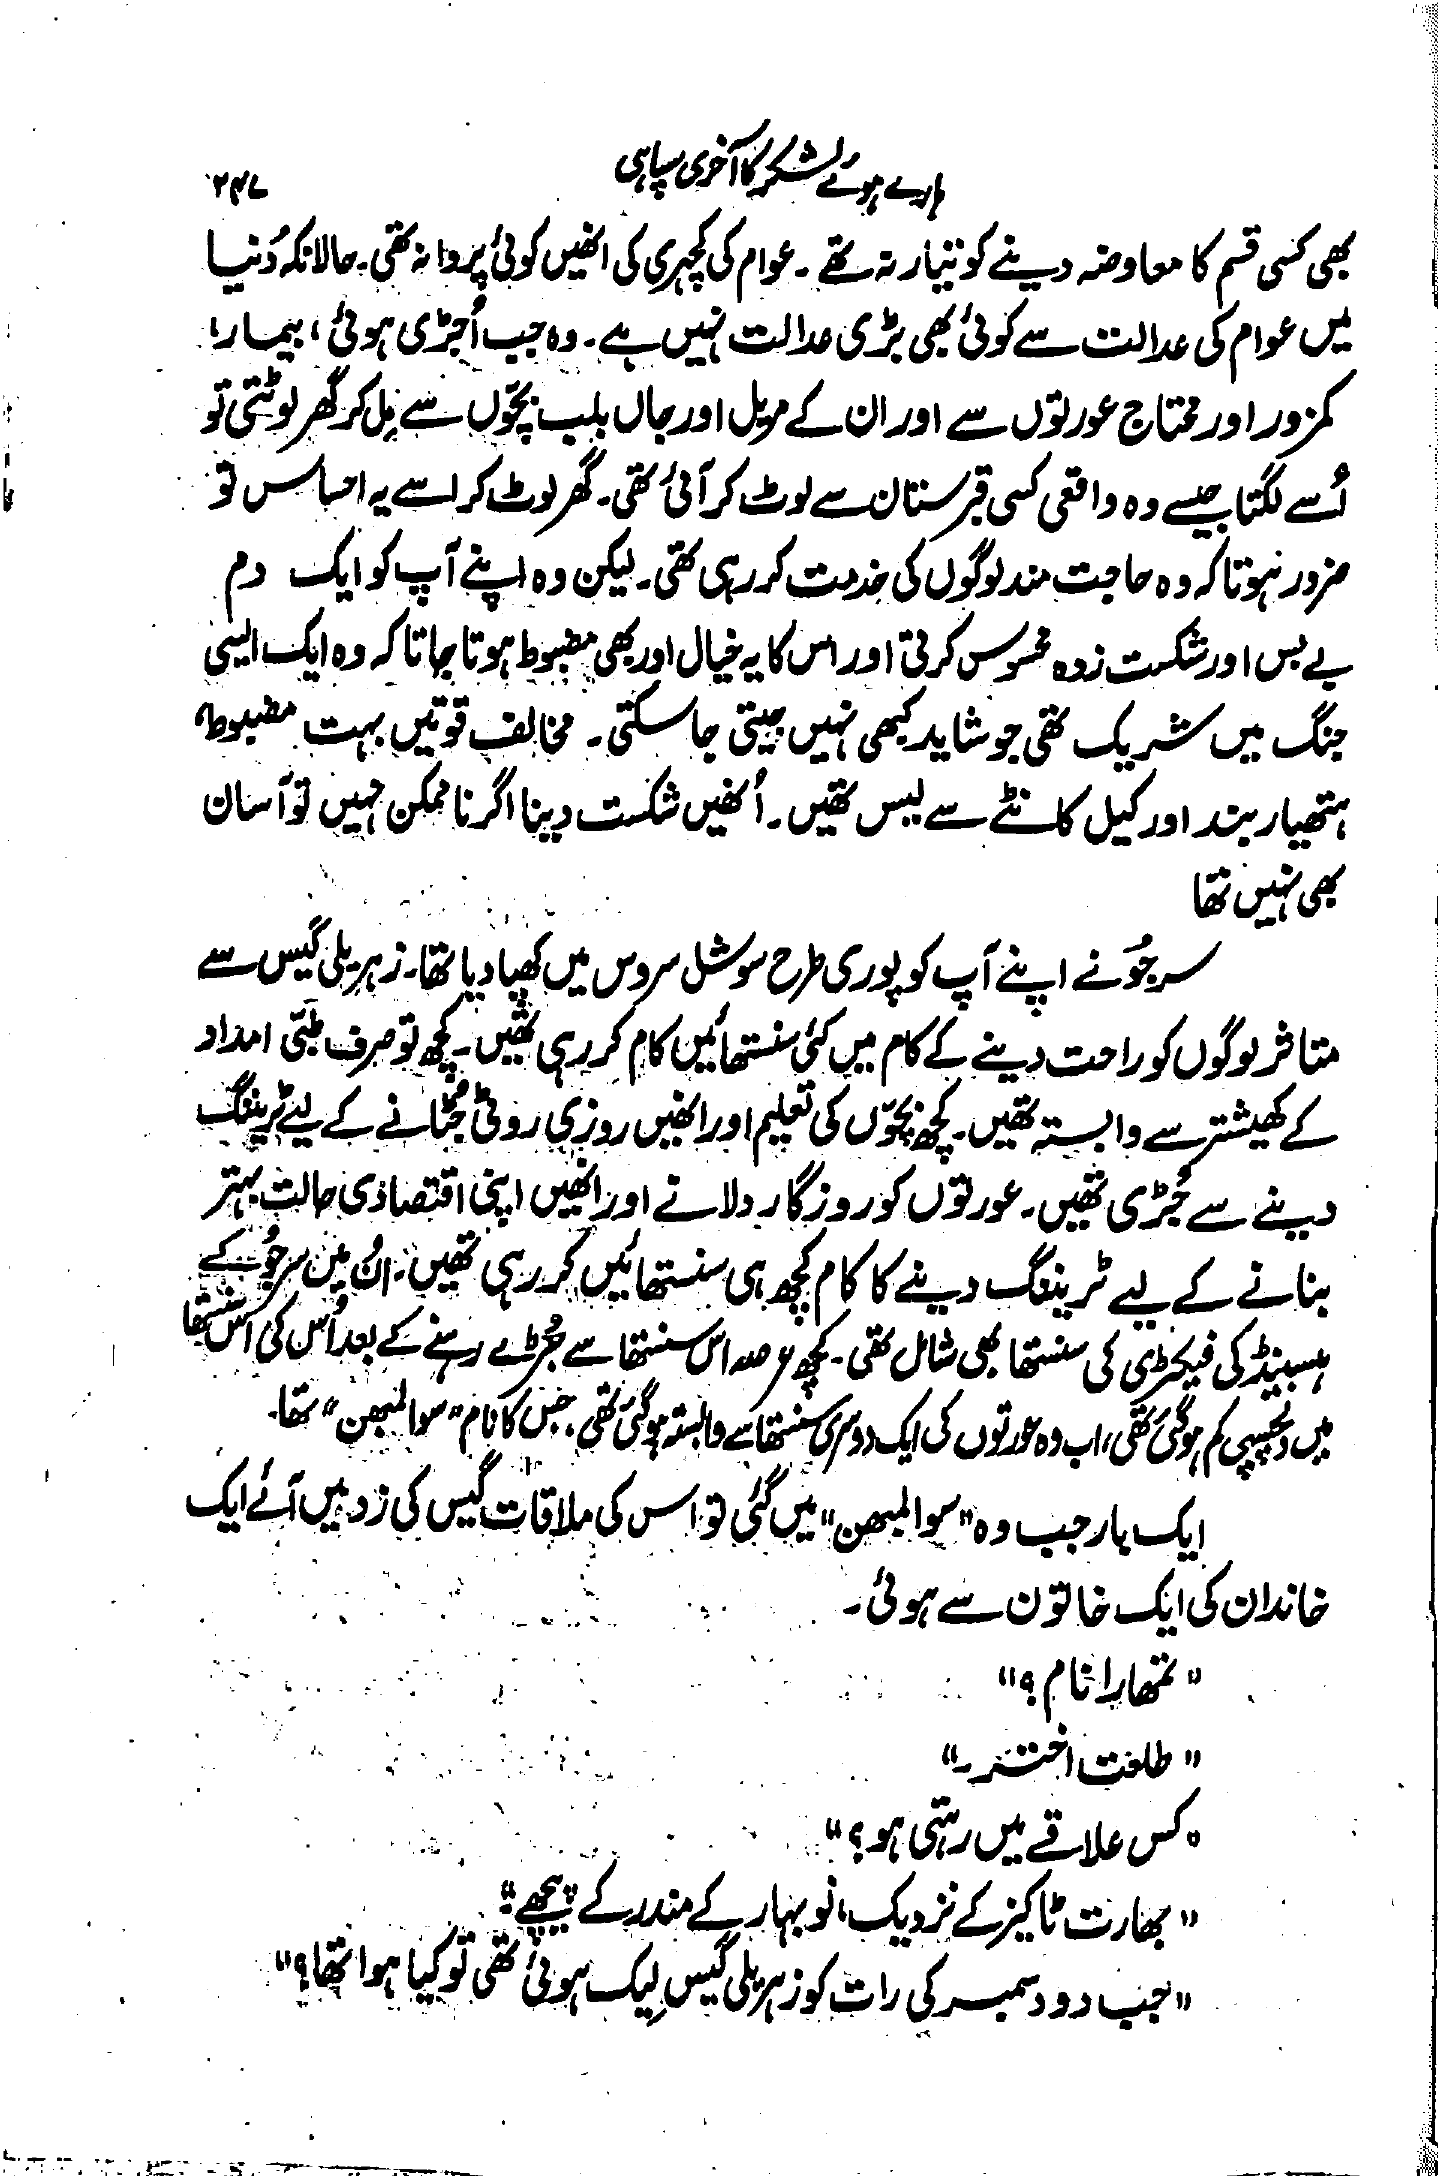 ہارے ہوئے لشکر کا آخری سپاہی
۲۴۷
بھی کسی قسم کا معاوضہ دینے کو تیار نہ تھے۔ عوام کی کچہری کی انھیں کوئی پروا نہ تھی۔ حالانکہ دُنیا
میں عوام کی عدالت سے کوئی بھی بڑی عدالت نہیں ہے۔ وہ جب اُجڑی ہوئی، بیمار،
کمزور اور محتاج عورتوں سے اور ان کے مریل اور جاں بلب بچّوں سے مِل کر گھر لوٹتی تو
اُسے لگتا جیسے وہ واقعی کسی قبرستان سے لوٹ کر آئی تھی۔ گھر لوٹ کر اسے یہ احساس تو
ضرور ہوتا کہ وہ حاجت مند لوگوں کی خدمت کر رہی تھی۔ لیکن وہ اپنے آپ کو ایک دم
بے بس اور شکست زدہ محسوس کرتی اور اس کا یہ خیال اور بھی مضبوط ہوتا جاتا کہ وہ ایک ایسی
جنگ میں شریک تھی جو شاید کبھی نہیں جیتی جا سکتی۔ مخالف قوتیں بہت مضبوط،
ہتھیار بند اور کیل کانٹے سے لیس تھیں۔ اُنھیں شکست دینا اگر ناممکن نہیں تو آسان
بھی نہیں تھا
سرجوُ نے اپنے آپ کو پوری طرح سوشل سروس میں کھپا دیا تھا۔ زہریلی گیس سے
متاثر لوگوں کو راحت دینے کے کام میں کئی سنستھائیں کام کر رہی تھیں۔ کچھ تو صرف طبّی امداد
کے کھیشتر سے وابستہ تھیں۔ کچھ بچّوں کی تعلیم اور انھیں روزی روٹی جُٹانے کے لیے ٹریننگ
دینے سے جُڑی تھیں۔ عورتوں کو روزگار دلانے اور انھیں اپنی اقتصادی حالت بہتر
بنانے کے لیے ٹریننگ دینے کا کام کچھ ہی سنستھائیں کر رہی تھیں۔ اُن میں سرجوُ کے
ہسبینڈ کی فیکٹری کی سنستھا بھی شامل تھی۔ کچھ عرصہ اس سنستھا سے جُڑے رہنے کے بعد اُس کی اس سنستھا
میں دلچسپی کم ہو گئی تھی، اب وہ عورتوں کی ایک دوسری سنستھا سے وابستہ ہو گئی تھی، جس کا نام ”سوالمبھن“ تھا۔
ایک بار جب وہ ”سوالمبھن“ میں گئی تو اس کی ملاقات گیس کی زد میں آئے ایک
خاندان کی ایک خاتون سے ہوئی۔
”تمھارا نام؟“
”طلعت اختر۔“
”کس علاقے میں رہتی ہو؟“
”بھارت ٹاکیز کے نزدیک، نوبہار کے مندر کے پیچھے۔“
”جب دو دسمبر کی رات کو زہریلی گیس لِیک ہوئی تھی تو کیا ہوا تھا؟“